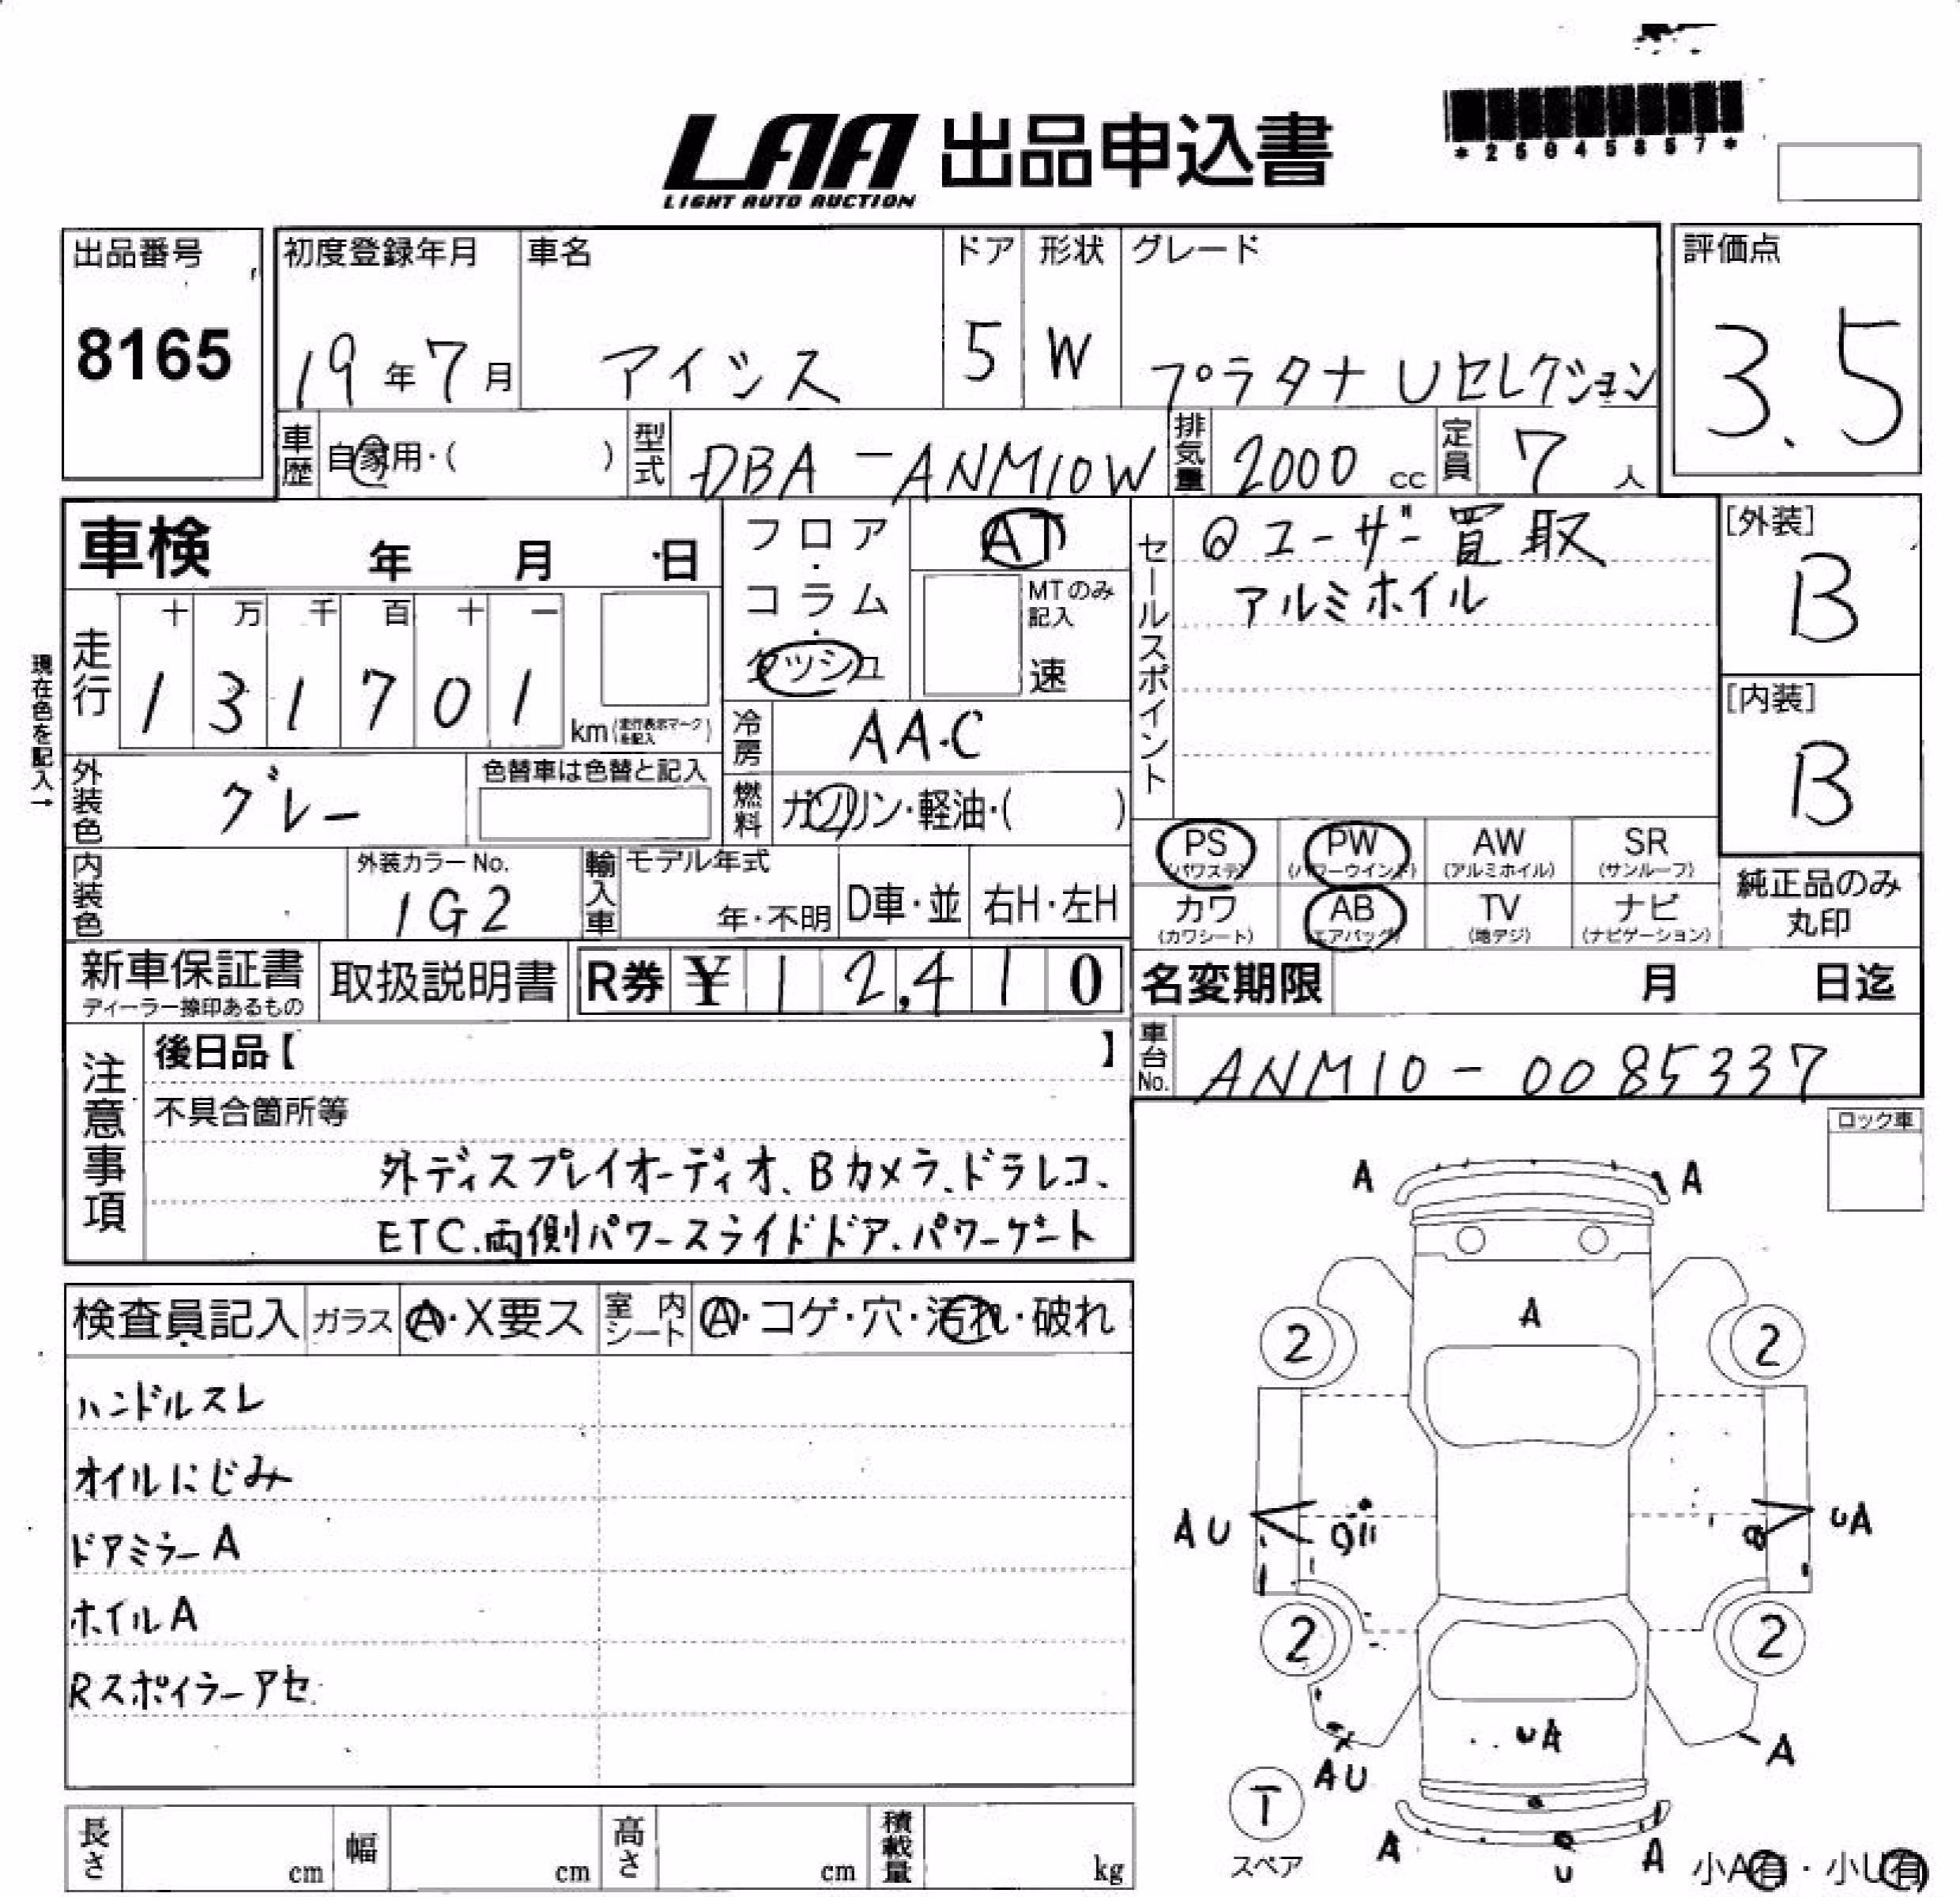 LAA 出品申込書
LIGHT AUTO AUCTION
*25045857*
出品番号
8165
初度登録年月
19年7月
車名
アイシス
ドア
5
形状
W
グレード
プラタナ Uセレクション
評価点
3.5
車歴
自家用・( )
型式
DBA-ANM10W
排気量
2000 cc
定員
7 人
車検 年 月 日
フロア・コラム・ダッシュ
AT
MTのみ記入
速
セールスポイント
ユーザー買取
アルミホイル
[外装]
B
[内装]
B
現在色を記入→
走行
十 万 千 百 十 一
1 3 1 7 0 1
km(走行表示マークを記入)
冷房
AA.C
外装色
グレー
色替車は色替と記入
燃料
ガソリン・軽油・( )
内装色
外装カラーNo.
1G2
輸入車
モデル年式
年・不明
D車・並
右H・左H
PS
(パワステ)
PW
(パワーウインド)
AW
(アルミホイル)
SR
(サンルーフ)
カワ
(カワシート)
AB
(エアバッグ)
TV
(地デジ)
ナビ
(ナビゲーション)
純正品のみ
丸印
新車保証書
ディーラー捺印あるもの
取扱説明書
R券 ¥ 12,410
名変期限 月 日迄
車台No.
ANM10-0085337
注意事項
後日品【 】
不具合箇所等
外ディスプレイオーディオ、Bカメラ、ドラレコ、
ETC、両側パワースライドドア、パワーゲート
ロック車
検査員記入
ガラス
A・X要ス
室内シート
A・コゲ・穴・汚れ・破れ
ハンドルスレ
オイルにじみ
ドアミラーA
ホイルA
Rスポイラーアセ
A A
A
2 2
AU UA
2 2
UA
AU A
T
スペア
A U A
小A有・小U有
長さ cm
幅 cm
高さ cm
積載量 kg